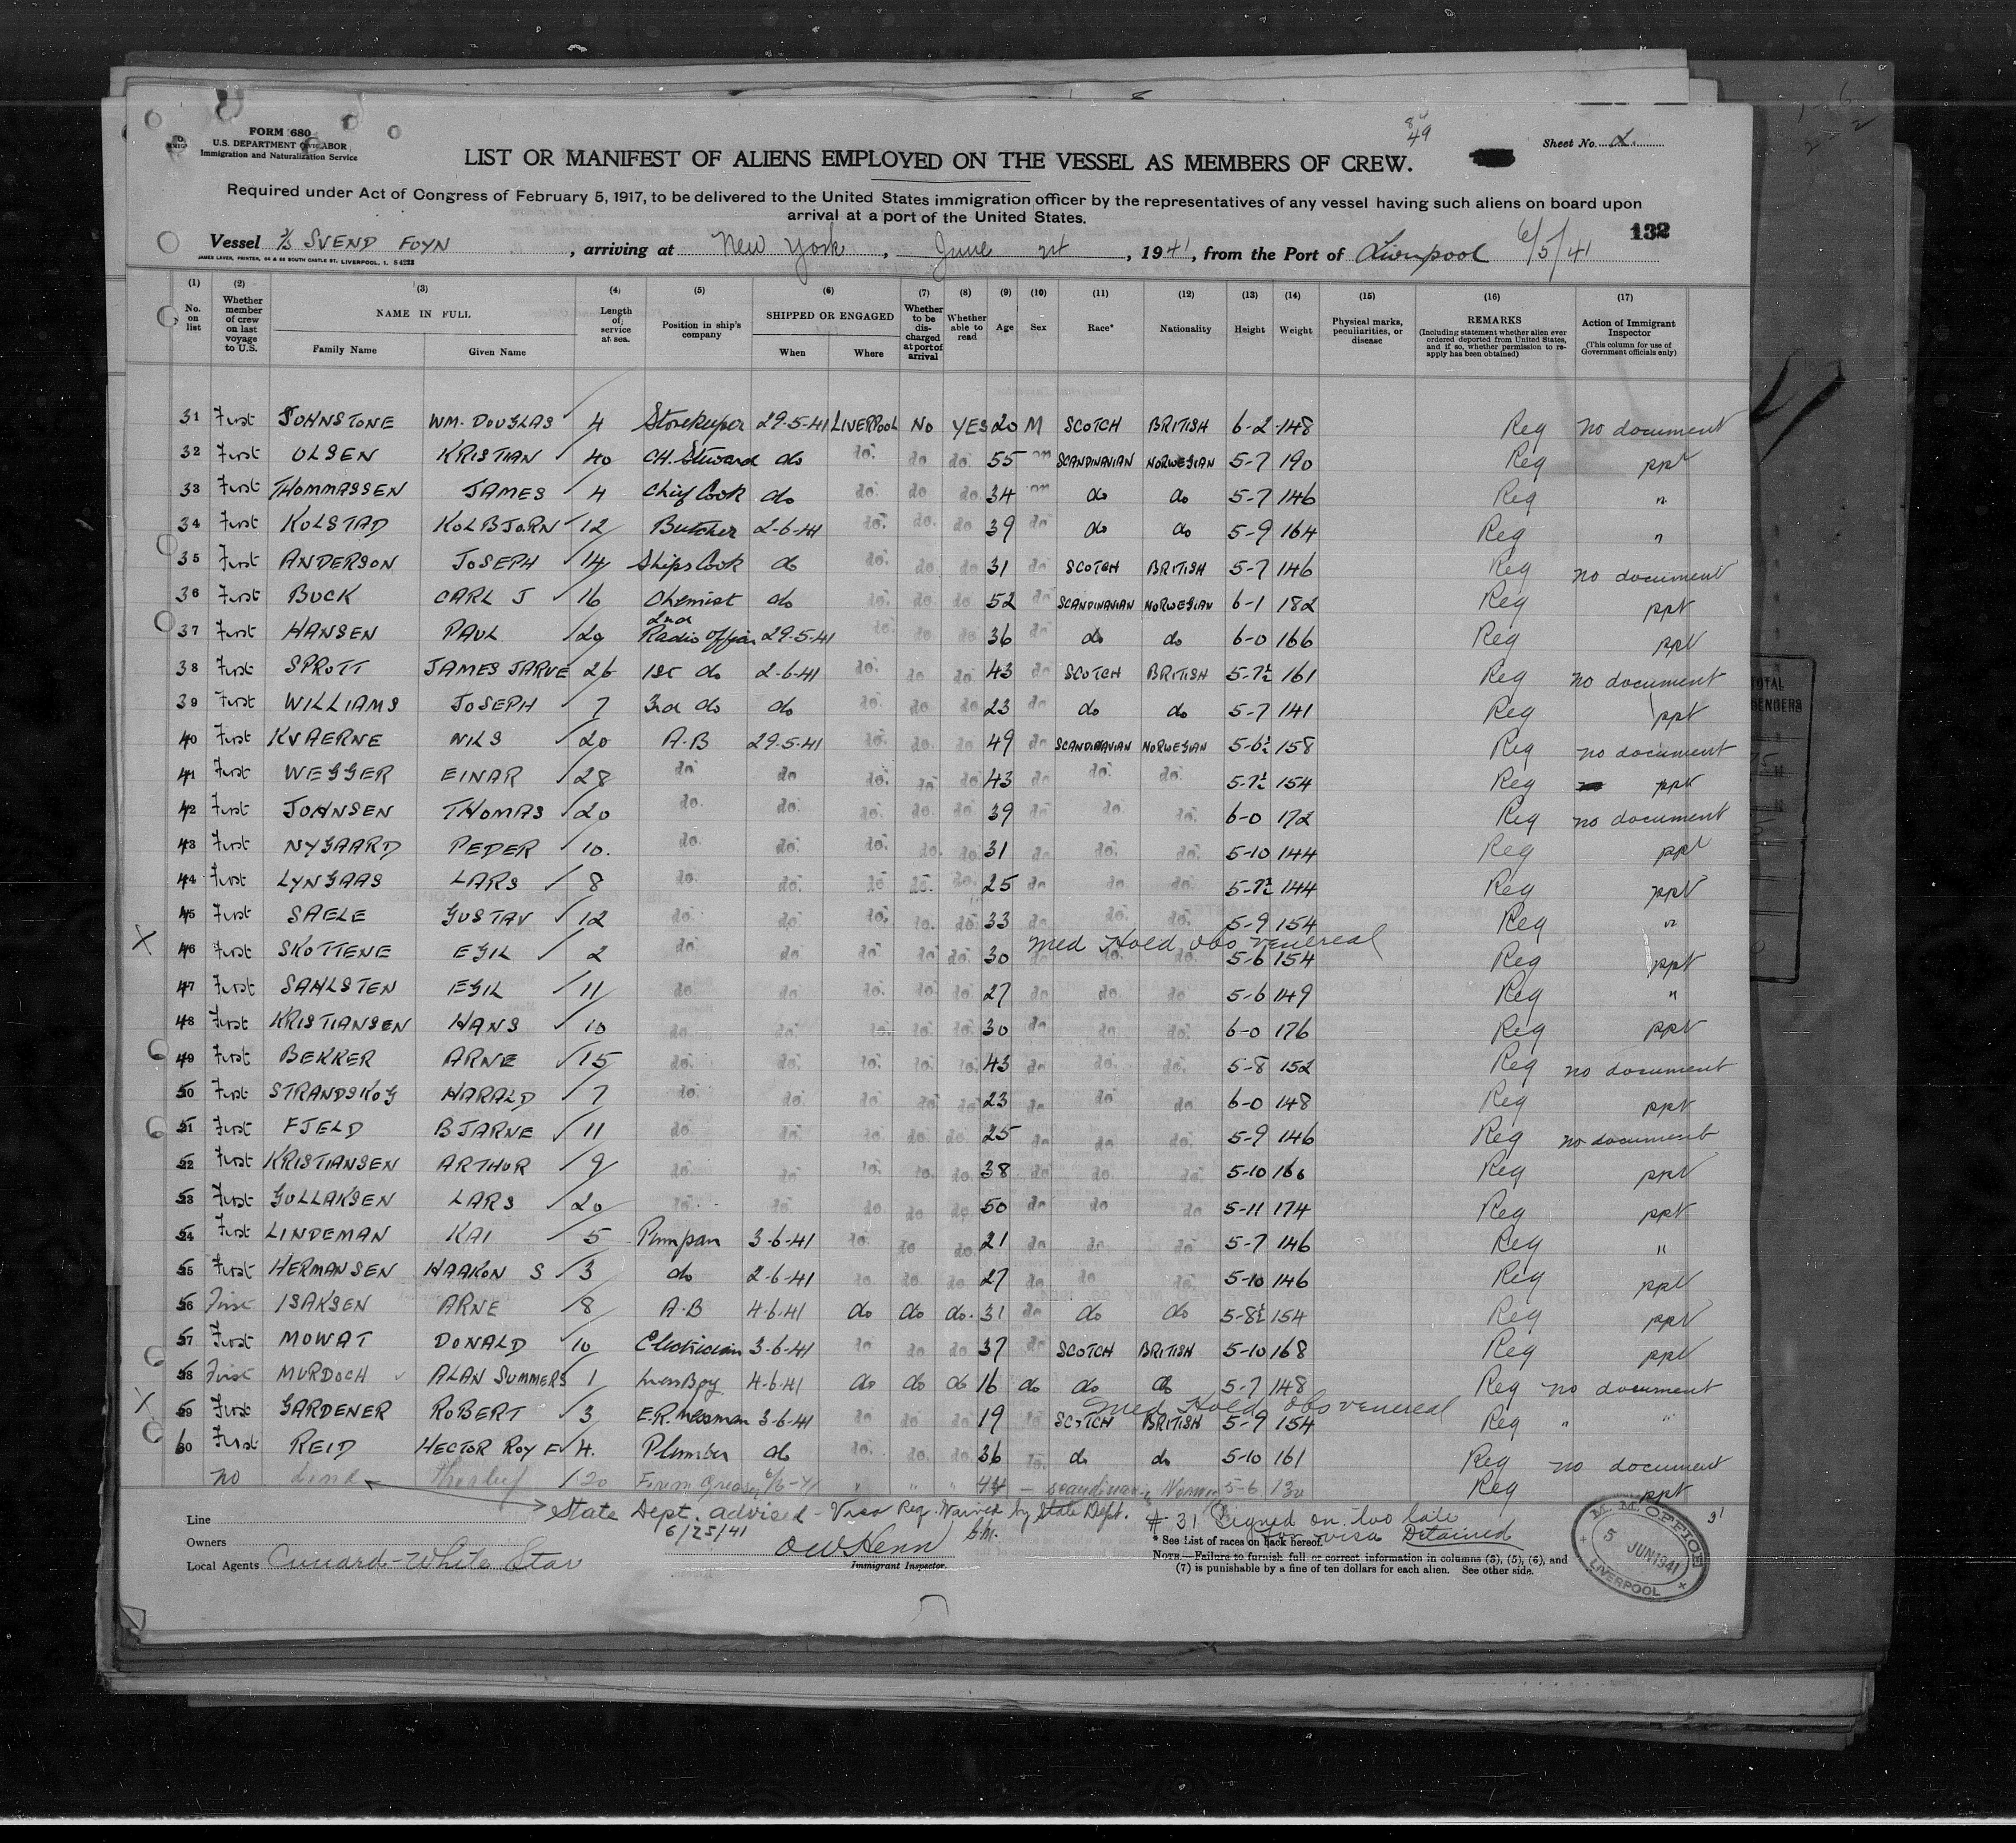 FORM 680
U.S. DEPARTMENT OF LABOR
Immigration and Naturalization Service
84
49
Sheet No. 2
LIST OR MANIFEST OF ALIENS EMPLOYED ON THE VESSEL AS MEMBERS OF CREW.
Required under Act of Congress of February 5, 1917, to be delivered to the United States immigration officer by the representatives of any vessel having such aliens on board upon
arrival at a port of the United States.
132
Vessel S/S SVEND FOYN, arriving at New York, June 1941, from the Port of Liverpool 6/5/41
JAMES LAVER, PRINTER, 64 & 66 SOUTH CASTLE ST. LIVERPOOL, 1.
(1) (2) (3) (4) (5) (6) (7) (8) (9) (10) (11) (12) (13) (14) (15) (16) (17)
No. on list
Whether member of crew on last voyage to U.S.
NAME IN FULL
Family Name Given Name
Length of service at sea.
Position in ship's company
SHIPPED OR ENGAGED
When Where
Whether to be discharged at port of arrival
Whether able to read
Age Sex Race* Nationality Height Weight
Physical marks, peculiarities, or disease
REMARKS
(Including statement whether alien ever ordered deported from United States, and if so, whether permission to reapply has been obtained)
Action of Immigrant Inspector
(This column for use of Government officials only)
31 First JOHNSTONE WM. DOUGLAS 4 Storekeeper 29-5-41 LIVERPOOL NO YES 20 M SCOTCH BRITISH 6-2 148 Reg No document
32 First OLSEN KRISTIAN 40 CH. Steward do do. do do. 55 m SCANDINAVIAN NORWEGIAN 5-7 190 Reg ppt
33 First THOMMASSEN JAMES 4 Chief Cook do do. do do 34 m do do 5-7 146 Reg "
34 First KOLSTAD KOLBJORN 12 Butcher 2-6-41 do. do. do 39 do do do 5-9 164 Reg "
35 First ANDERSON JOSEPH 14 Ships Cook do do. do do 31 do SCOTCH BRITISH 5-7 146 Reg no document
36 First BUCK CARL J 16 Chemist do do. do. do 52 do SCANDINAVIAN NORWEGIAN 6-1 182 Reg ppt
37 First HANSEN PAUL 29 2nd Radio Officer 29-5-41 do. do. do 36 do do do 6-0 166 Reg ppt
38 First SPROTT JAMES JARVE 26 1st do 2-6-41 do. do do 43 do SCOTCH BRITISH 5-7½ 161 Reg no document
39 First WILLIAMS JOSEPH 7 3rd do do do. do do 23 do do do 5-7 141 Reg ppt
40 First KVAERNE NILS 20 A.B 29-5-41 do. do. do 49 do SCANDINAVIAN NORWEGIAN 5-6½ 158 Reg no document
41 First WEGGER EINAR 28 do do do. do do 43 do do. do. 5-7½ 154 Reg ppt
42 First JOHNSEN THOMAS 20 do. do. do. do. do. 39 do do do. 6-0 172 Reg no document
43 First NYGAARD PEDER 10. do. do. do. do. do. 31 do do. do. 5-10 144 Reg ppt
44 First LYNGAAS LARS 8 do. do. do do. do. 25 do do. do. 5-7½ 144 Reg ppt
45 First SAELE GUSTAV 12 do. do. do. do. do. 33 do do. do. 5-9 154 Reg "
X 46 First SKOTTENE EGIL 2 do. do do do do. 30 Med Hold obs venereal 5-6 154 Reg ppt
47 First SAHLSTEN EGIL 11 do. do do do. do. 27 do do. do 5-6 149 Reg "
48 First KRISTIANSEN HANS 10 do. do. do. do. do. 30 do do. do. 6-0 176 Reg ppt
49 First BEKKER ARNE 15 do. do. do. do. do. 43 do do. do. 5-8 152 Reg no document
50 First STRANDSKOG HARALD 7 do. do. do do do 23 do do do 6-0 148 Reg ppt
51 First FJELD BJARNE 11 do. do. do. do do 25 do do do. 5-9 146 Reg no document
52 First KRISTIANSEN ARTHUR 9 do. do do. do. do. 38 do do. do. 5-10 166 Reg ppt
53 First GULLAKSEN LARS 20 do. do. do do do. 50 do do do 5-11 174 Reg ppt
54 First LINDEMAN KAI 5 Pumpman 3-6-41 do. do do 21 do do do 5-7 146 Reg "
55 First HERMANSEN HAAKON S 3 do 2-6-41 do do. do 27 do do do. 5-10 146 Reg ppt
56 First ISAKSEN ARNE 8 A-B 4-6-41 do do do. 31 do do do 5-8½ 154 Reg ppt
57 First MOWAT DONALD 10 Electrician 3-6-41 do do do 37 do SCOTCH BRITISH 5-10 168 Reg ppt
58 First MURDOCH ALAN SUMMERS 1 Mess Boy 4-6-41 do do do 16 do do do 5-7 148 Reg no document
X 59 First GARDENER ROBERT 3 E.R. Messman 3-6-41 do do do 19 Med Hold obs venereal SCOTCH BRITISH 5-9 154 Reg " "
60 First REID HECTOR ROY F. 4. Plumber do do. do. do. 36 do. do do 5-10 161 Reg no document
no Lind Thorleif 20 Greaser 6/6-41 " " " 44 - Scandinavian Norweg 5-6 130 Reg ppt
State Dept. advised - Visa Req. Waived by State Dept.
6/25/41
# 31 Signed on too late
for visa Detained
Line
Owners
Local Agents Cunard-White Star
O W Henn
Immigrant Inspector.
* See List of races on back hereof.
NOTE.—Failure to furnish full or correct information in columns (3), (5), (6), and
(7) is punishable by a fine of ten dollars for each alien. See other side.
M. M. OFFICE
5 JUN 1941
LIVERPOOL
TOTAL